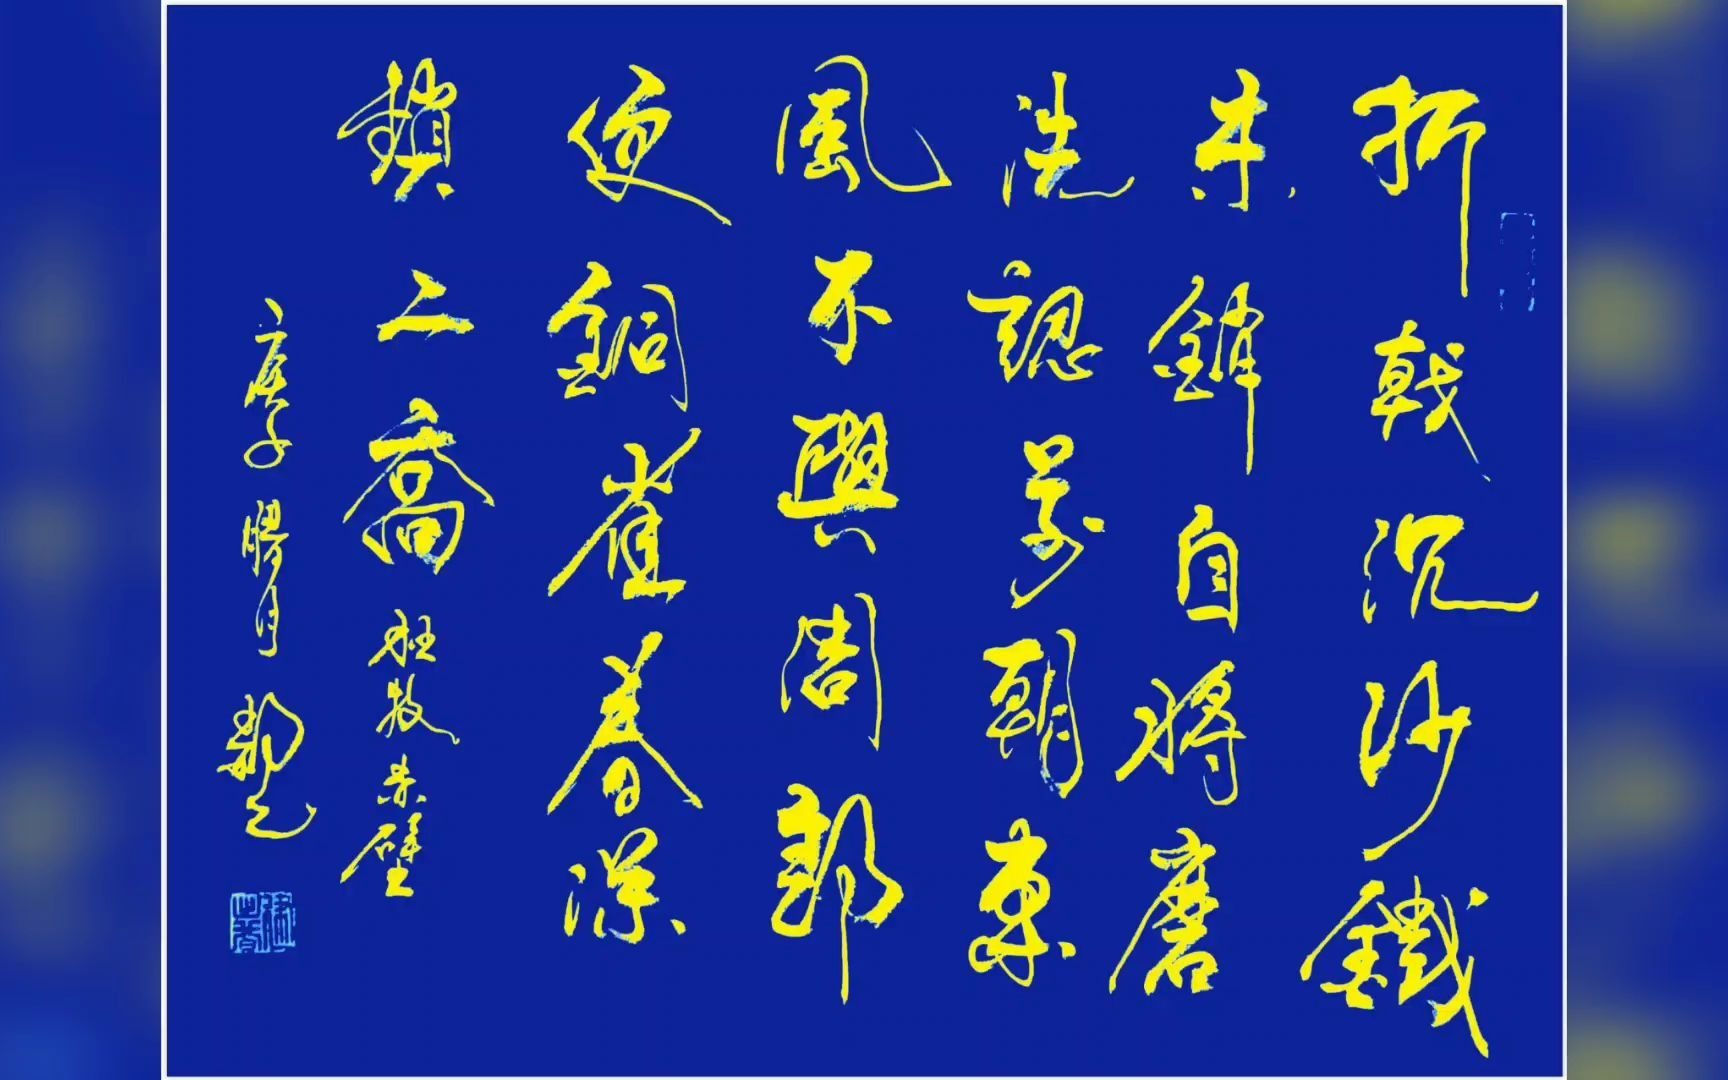 折戟沉沙鐵
未銷自將磨
洗認前朝東
風不與周郎
便銅雀春深
鎖二喬 杜牧赤壁
庚子臘月